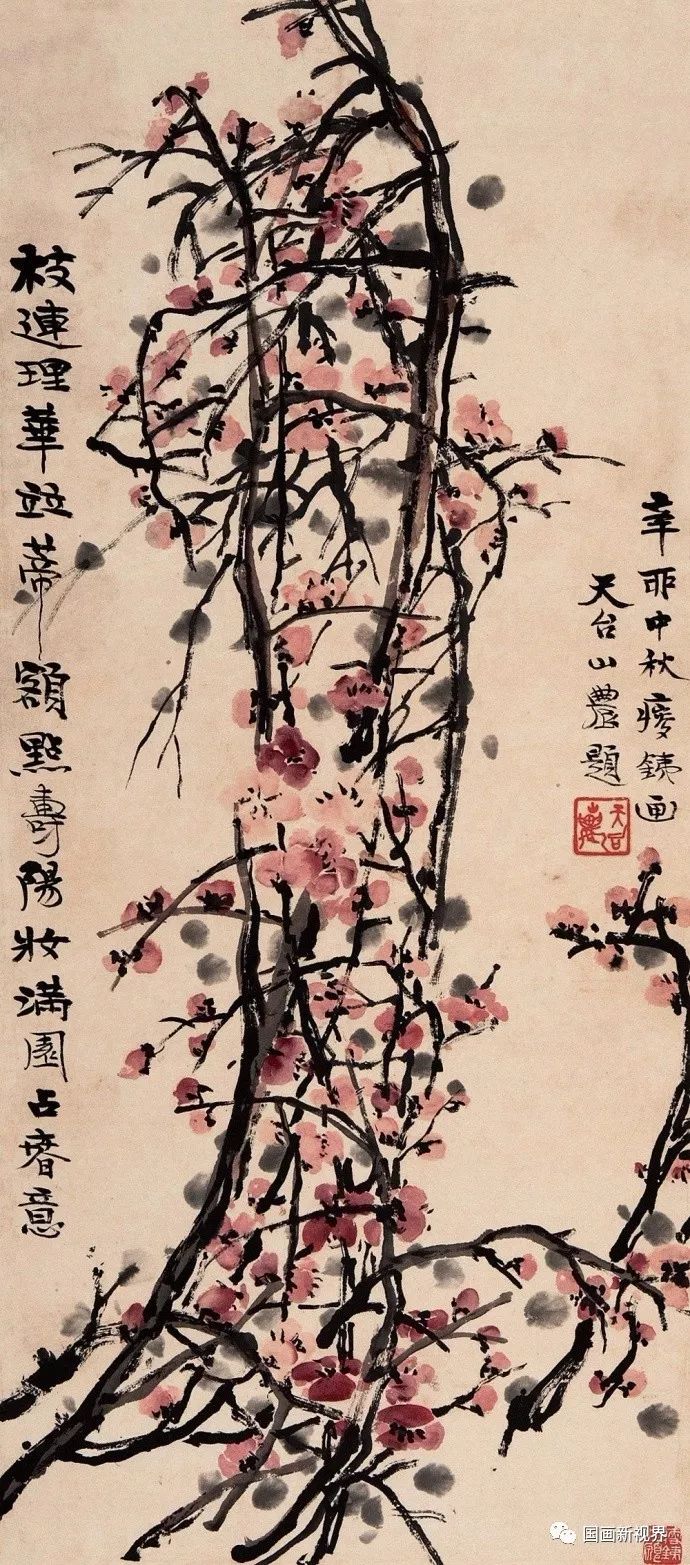 枝連理華竝蒂額點壽陽妝滿園占春意
辛丣中秋瘦銕画
天台山農題
天台山農
国画新视界